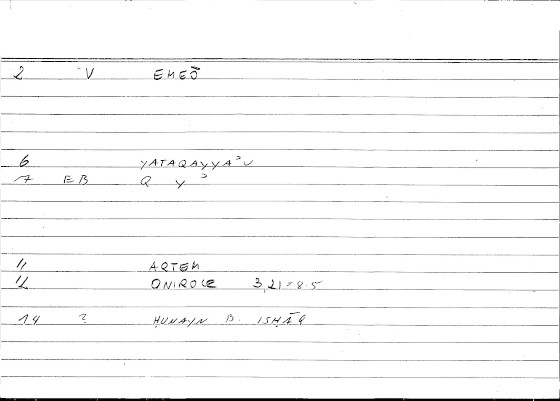 2 V EMEŌ
6 YATAQAYYAʾU
7 EB Q Y ʾ
11 ARTEM
12 ONIROCE 3,21=8.5
14 ? ḤUNAYN B. ISḤĀQ